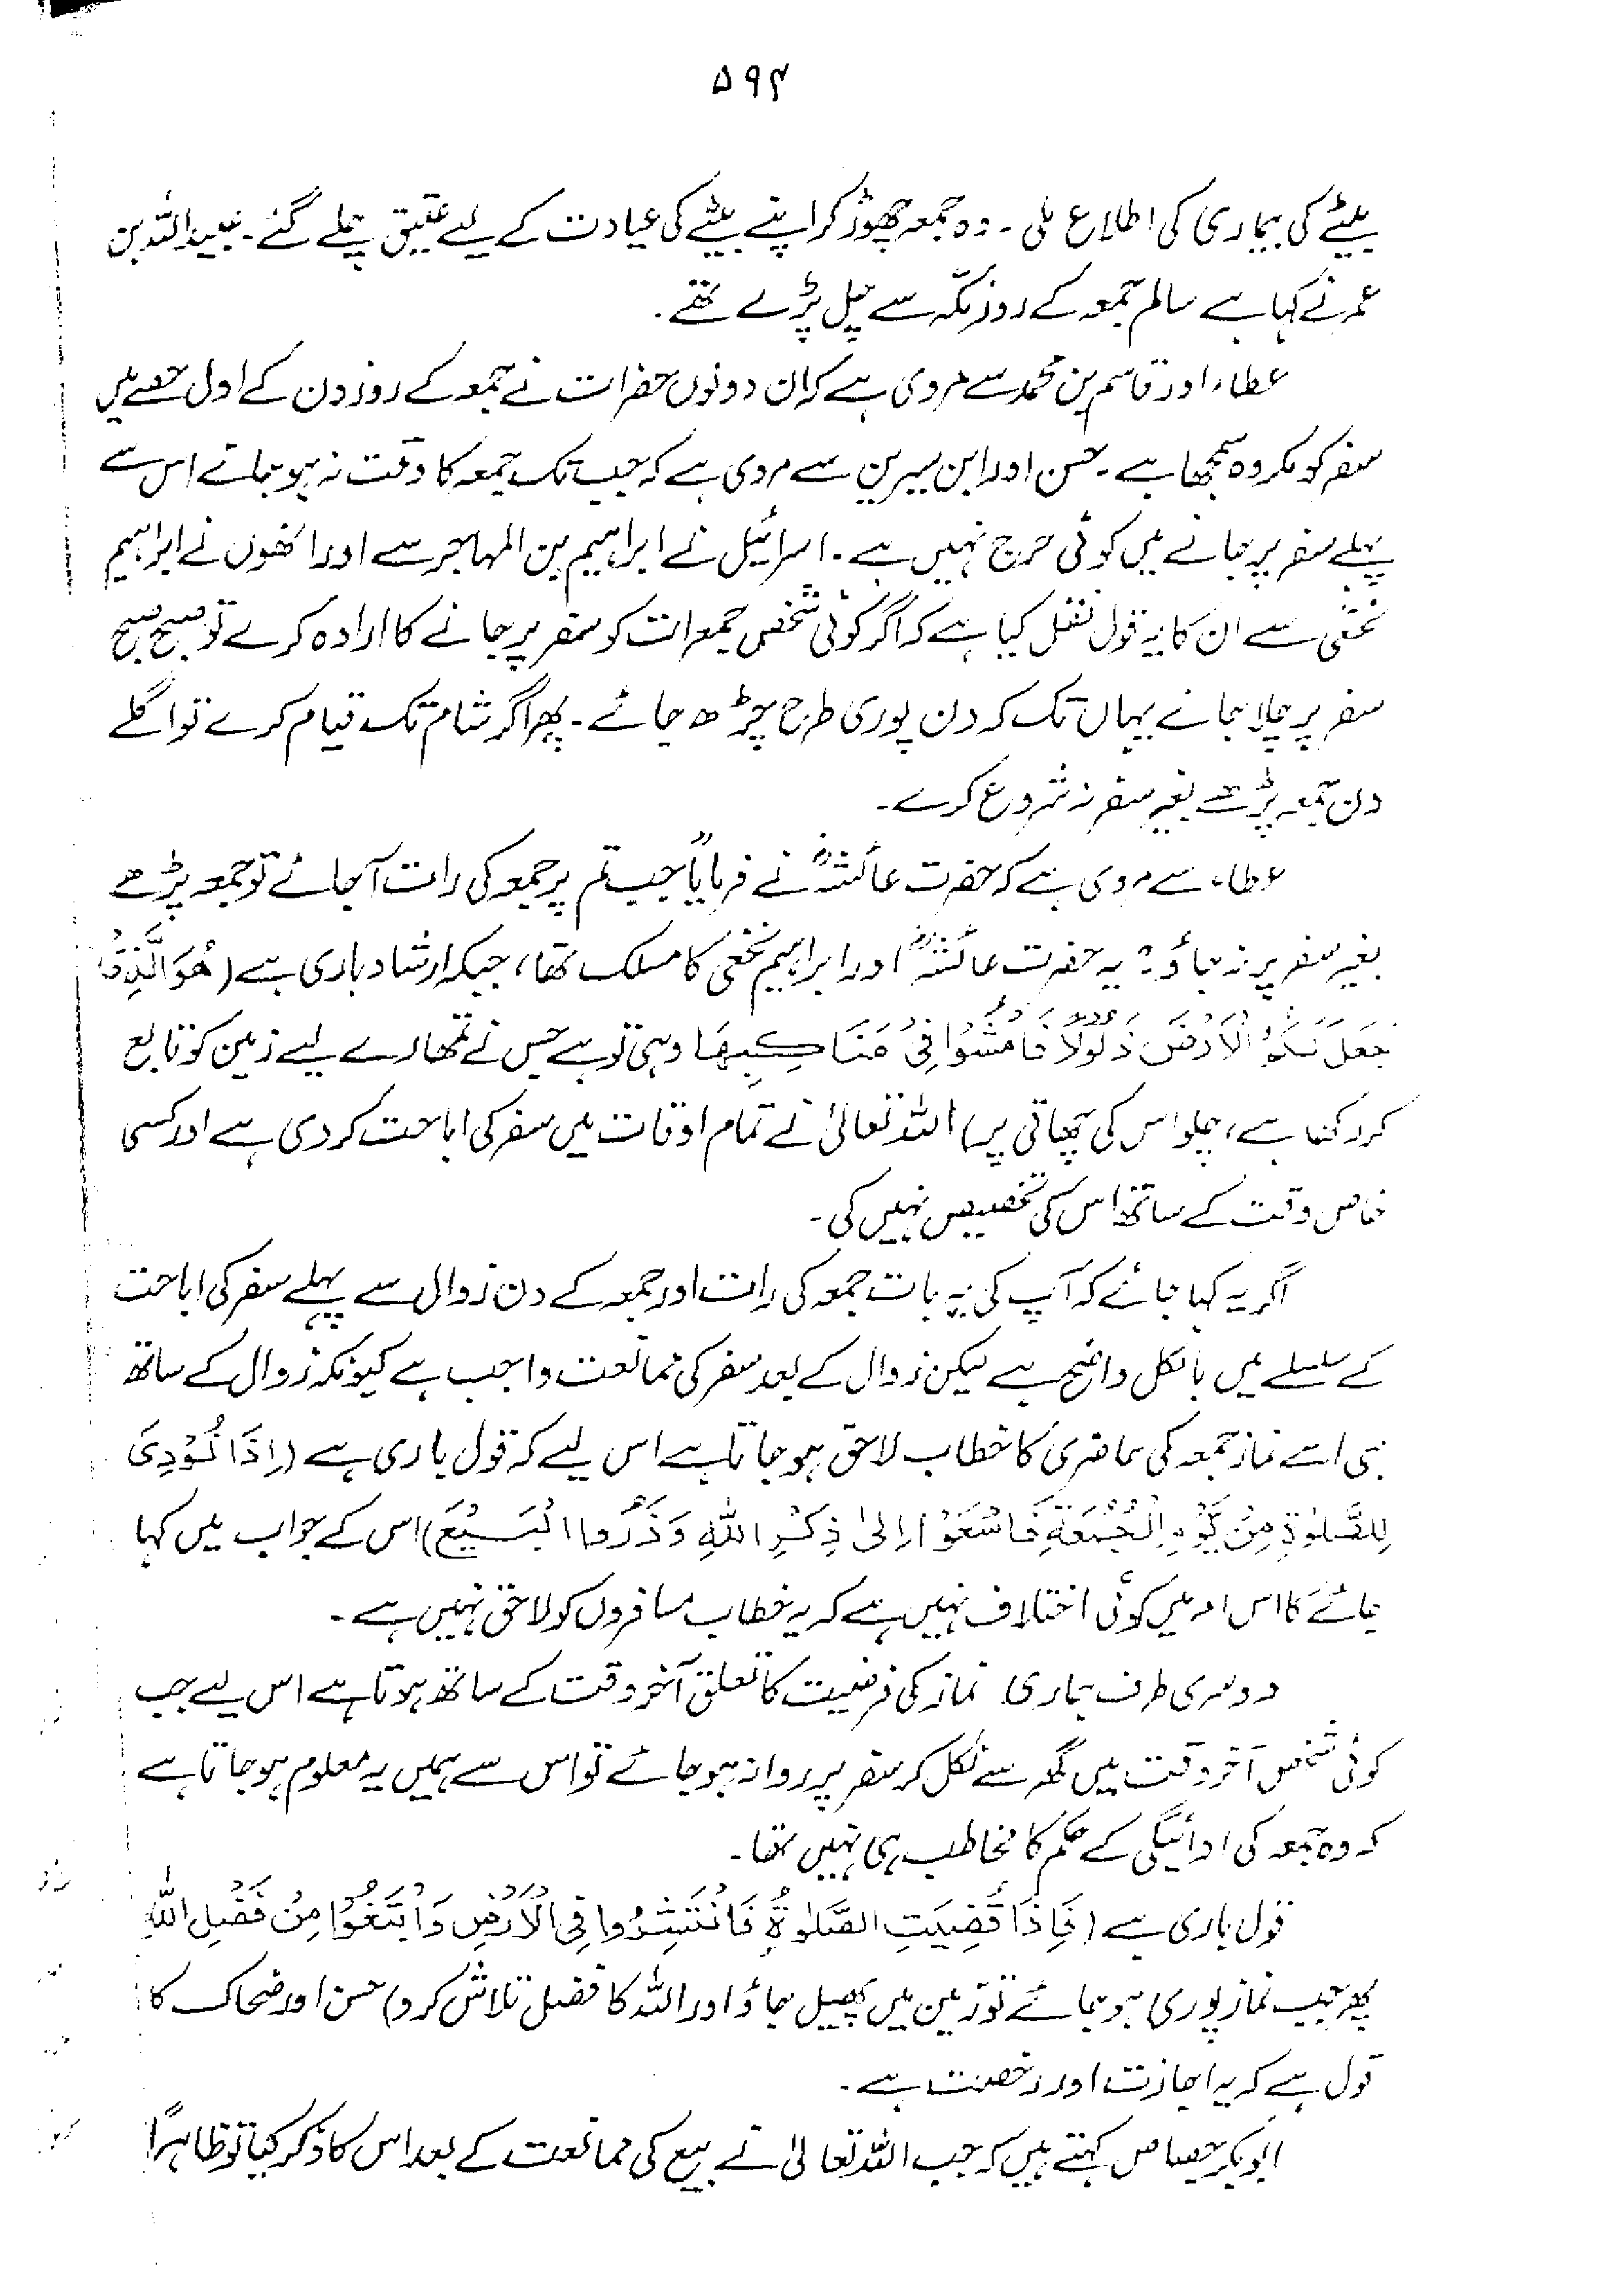 ۵۹۴
بیٹے کی بیماری کی اطلاع ملی۔ وہ جمعہ چھوڑ کر اپنے بیٹے کی عیادت کے لیے عقیق چلے گئے۔ عبیداللہ بن
عمر نے کہا ہے سالم جمعہ کے روز مکہ سے چل پڑے تھے۔
عطاء اور قاسم بن محمد سے مروی ہے کہ ان دونوں حضرات نے جمعہ کے روز دن کے اول حصے میں
سفر کو مکروہ سمجھا ہے۔ حسن اور ابن سیرین سے مروی ہے کہ جب تک جمعہ کا وقت نہ ہو جائے اس سے
پہلے سفر پر جانے میں کوئی حرج نہیں ہے۔ اسرائیل نے ابراہیم بن المہاجر سے اور انھوں نے ابراہیم
نخعی سے ان کا یہ قول نقل کیا ہے کہ اگر کوئی شخص جمعرات کو سفر پر جانے کا ارادہ کرے تو صبح صبح
سفر پر چلا جائے یہاں تک کہ دن پوری طرح چڑھ جائے۔ پھر اگر شام تک قیام کرے تو اگلے
دن جمعہ پڑھے بغیر سفر نہ شروع کرے۔
عطاء سے مروی ہے کہ حضرت عائشہؓ نے فرمایا "جب تم پر جمعہ کی رات آ جائے تو جمعہ پڑھے
بغیر سفر پر نہ جاؤ۔" یہ حضرت عائشہؓ اور ابراہیم نخعی کا مسلک تھا، جبکہ ارشاد باری ہے (هُوَ الَّذِیْ
جَعَلَ لَكُمُ الْاَرْضَ ذَلُوْلًا فَامْشُوْا فِیْ مَنَاكِبِهَا وہی تو ہے جس نے تمھارے لیے زمین کو تابع
کر رکھا ہے، چلو اس کی چھاتی پر) اللہ تعالیٰ نے تمام اوقات میں سفر کی اباحت کر دی ہے اور کسی
خاص وقت کے ساتھ اس کی تخصیص نہیں کی۔
اگر یہ کہا جائے کہ آپ کی یہ بات جمعہ کی رات اور جمعہ کے دن زوال سے پہلے سفر کی اباحت
کے سلسلے میں بالکل واضح ہے لیکن زوال کے بعد سفر کی ممانعت واجب ہے کیونکہ زوال کے ساتھ
ہی اسے نماز جمعہ کی حاضری کا خطاب لاحق ہو جاتا ہے اس لیے کہ قول باری ہے (اِذَا نُوْدِیَ
لِلصَّلٰوةِ مِنْ یَّوْمِ الْجُمُعَةِ فَاسْعَوْا اِلٰی ذِكْرِ اللّٰهِ وَذَرُوا الْبَیْعَ) اس کے جواب میں کہا
جائے گا اس امر میں کوئی اختلاف نہیں ہے کہ یہ خطاب مسافروں کو لاحق نہیں ہے۔
دوسری طرف ہماری نماز کی فرضیت کا تعلق آخر وقت کے ساتھ ہوتا ہے اس لیے جب
کوئی شخص آخر وقت میں گھر سے نکل کر سفر پر روانہ ہو جائے تو اس سے ہمیں یہ معلوم ہو جاتا ہے
کہ وہ جمعہ کی ادائیگی کے حکم کا مخاطب ہی نہیں تھا۔
قول باری ہے (فَاِذَا قُضِیَتِ الصَّلٰوةُ فَانْتَشِرُوا فِی الْاَرْضِ وَابْتَغُوْا مِنْ فَضْلِ اللّٰهِ
پھر جب نماز پوری ہو جائے تو زمین میں پھیل جاؤ اور اللہ کا فضل تلاش کرو) حسن اور ضحاک کا
قول ہے کہ یہ اجازت اور رخصت ہے۔
ابوبکر جصاص کہتے ہیں کہ جب اللہ تعالیٰ نے بیع کی ممانعت کے بعد اس کا ذکر کیا تو ظاہراً